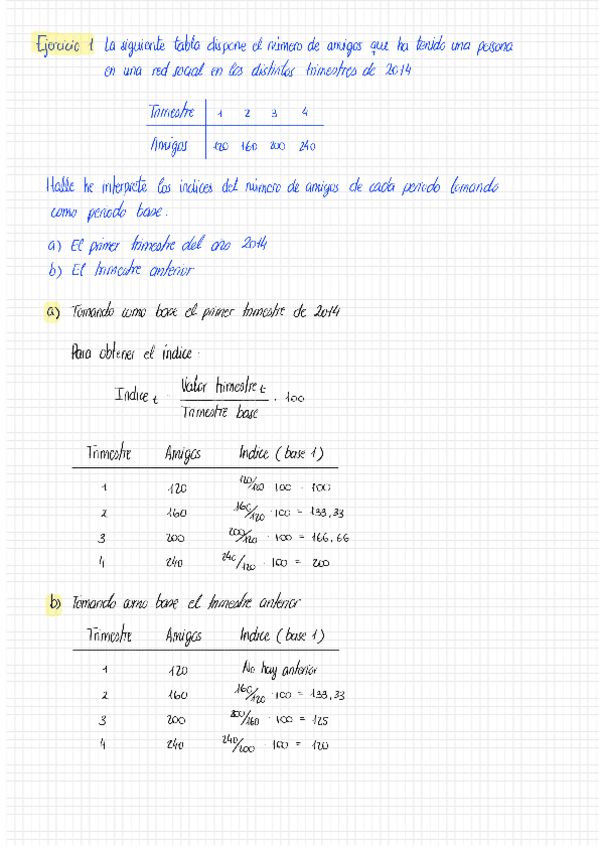 Ejercicio 1 La siguiente tabla dispone el número de amigos que ha tenido una persona
en una red social en los distintos trimestres de 2014
Trimestre 1 2 3 4
Amigos 120 160 200 240
Halle he interprete los indices del número de amigos de cada periodo tomando
como periodo base.
a) El primer trimestre del año 2014
b) El trimestre anterior
a) Tomando como base el primer trimestre de 2014
Para obtener el índice:
Indice t = Valor trimestre t / Trimestre base · 100
Trimestre Amigos Indice (base 1)
1 120 120/120 · 100 = 100
2 160 160/120 · 100 = 133,33
3 200 200/120 · 100 = 166,66
4 240 240/120 · 100 = 200
b) Tomando como base el trimestre anterior
Trimestre Amigos Indice (base 1)
1 120 No hay anterior
2 160 160/120 · 100 = 133,33
3 200 200/160 · 100 = 125
4 240 240/200 · 100 = 120